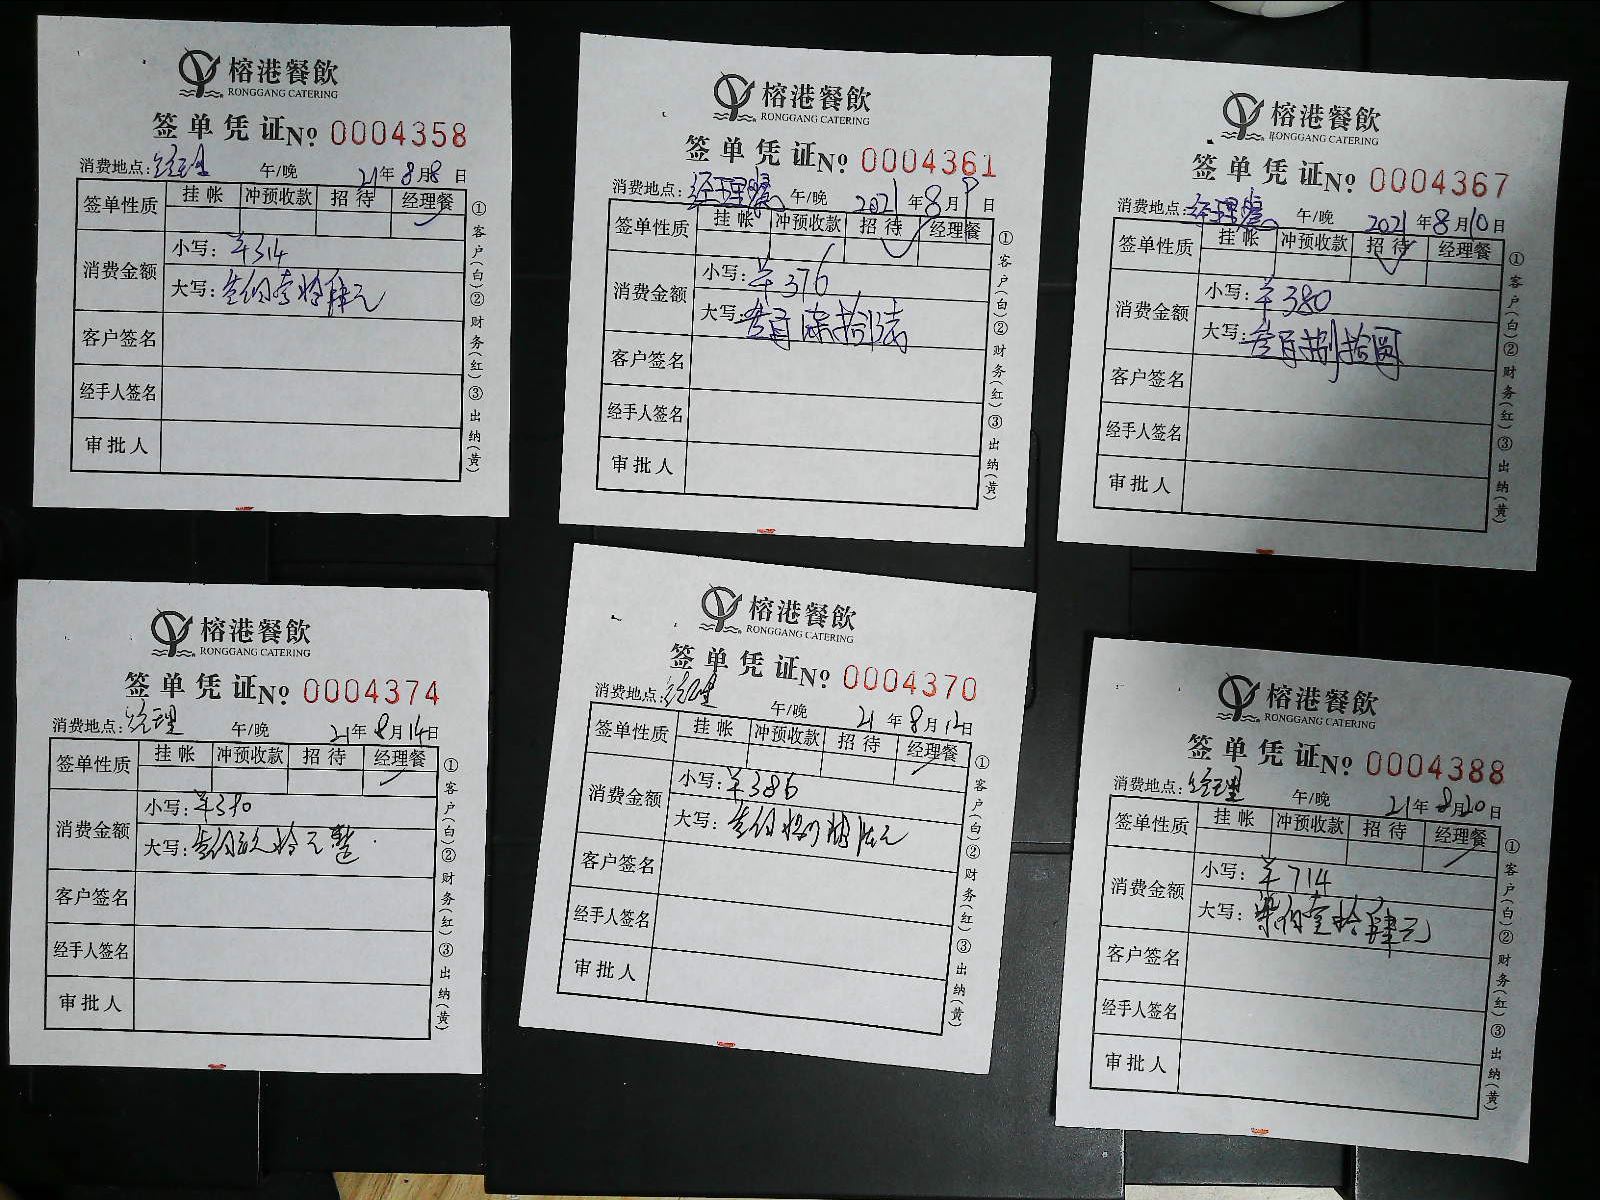 榕港餐飲
RONGGANG CATERING
签单凭证No 0004358
消费地点:经理 午/晚 21年8月8日
签单性质 挂帐 冲预收款 招待 经理餐
消费金额
小写:¥314
大写:叁佰壹拾肆元
客户签名
经手人签名
审批人
①客户(白)②财务(红)③出纳(黄)
榕港餐飲
RONGGANG CATERING
签单凭证No 0004361
消费地点:经理餐 午/晚 2021年8月9日
签单性质 挂帐 冲预收款 招待 经理餐
消费金额
小写:¥376
大写:叁百柒拾陆
客户签名
经手人签名
审批人
①客户(白)②财务(红)③出纳(黄)
榕港餐飲
RONGGANG CATERING
签单凭证No 0004367
消费地点:经理餐 午/晚 2021年8月10日
签单性质 挂帐 冲预收款 招待 经理餐
消费金额
小写:¥380
大写:叁百捌拾圆
客户签名
经手人签名
审批人
①客户(白)②财务(红)③出纳(黄)
榕港餐飲
RONGGANG CATERING
签单凭证No 0004374
消费地点:经理 午/晚 21年8月14日
签单性质 挂帐 冲预收款 招待 经理餐
消费金额
小写:¥390
大写:叁佰玖拾元整
客户签名
经手人签名
审批人
①客户(白)②财务(红)③出纳(黄)
榕港餐飲
RONGGANG CATERING
签单凭证No 0004370
消费地点:经理 午/晚 21年8月12日
签单性质 挂帐 冲预收款 招待 经理餐
消费金额
小写:¥386
大写:叁佰
客户签名
经手人签名
审批人
①客户(白)②财务(红)③出纳(黄)
榕港餐飲
RONGGANG CATERING
签单凭证No 0004388
消费地点:经理 午/晚 21年8月20日
签单性质 挂帐 冲预收款 招待 经理餐
消费金额
小写:¥714
大写:柒佰壹拾肆元
客户签名
经手人签名
审批人
①客户(白)②财务(红)③出纳(黄)